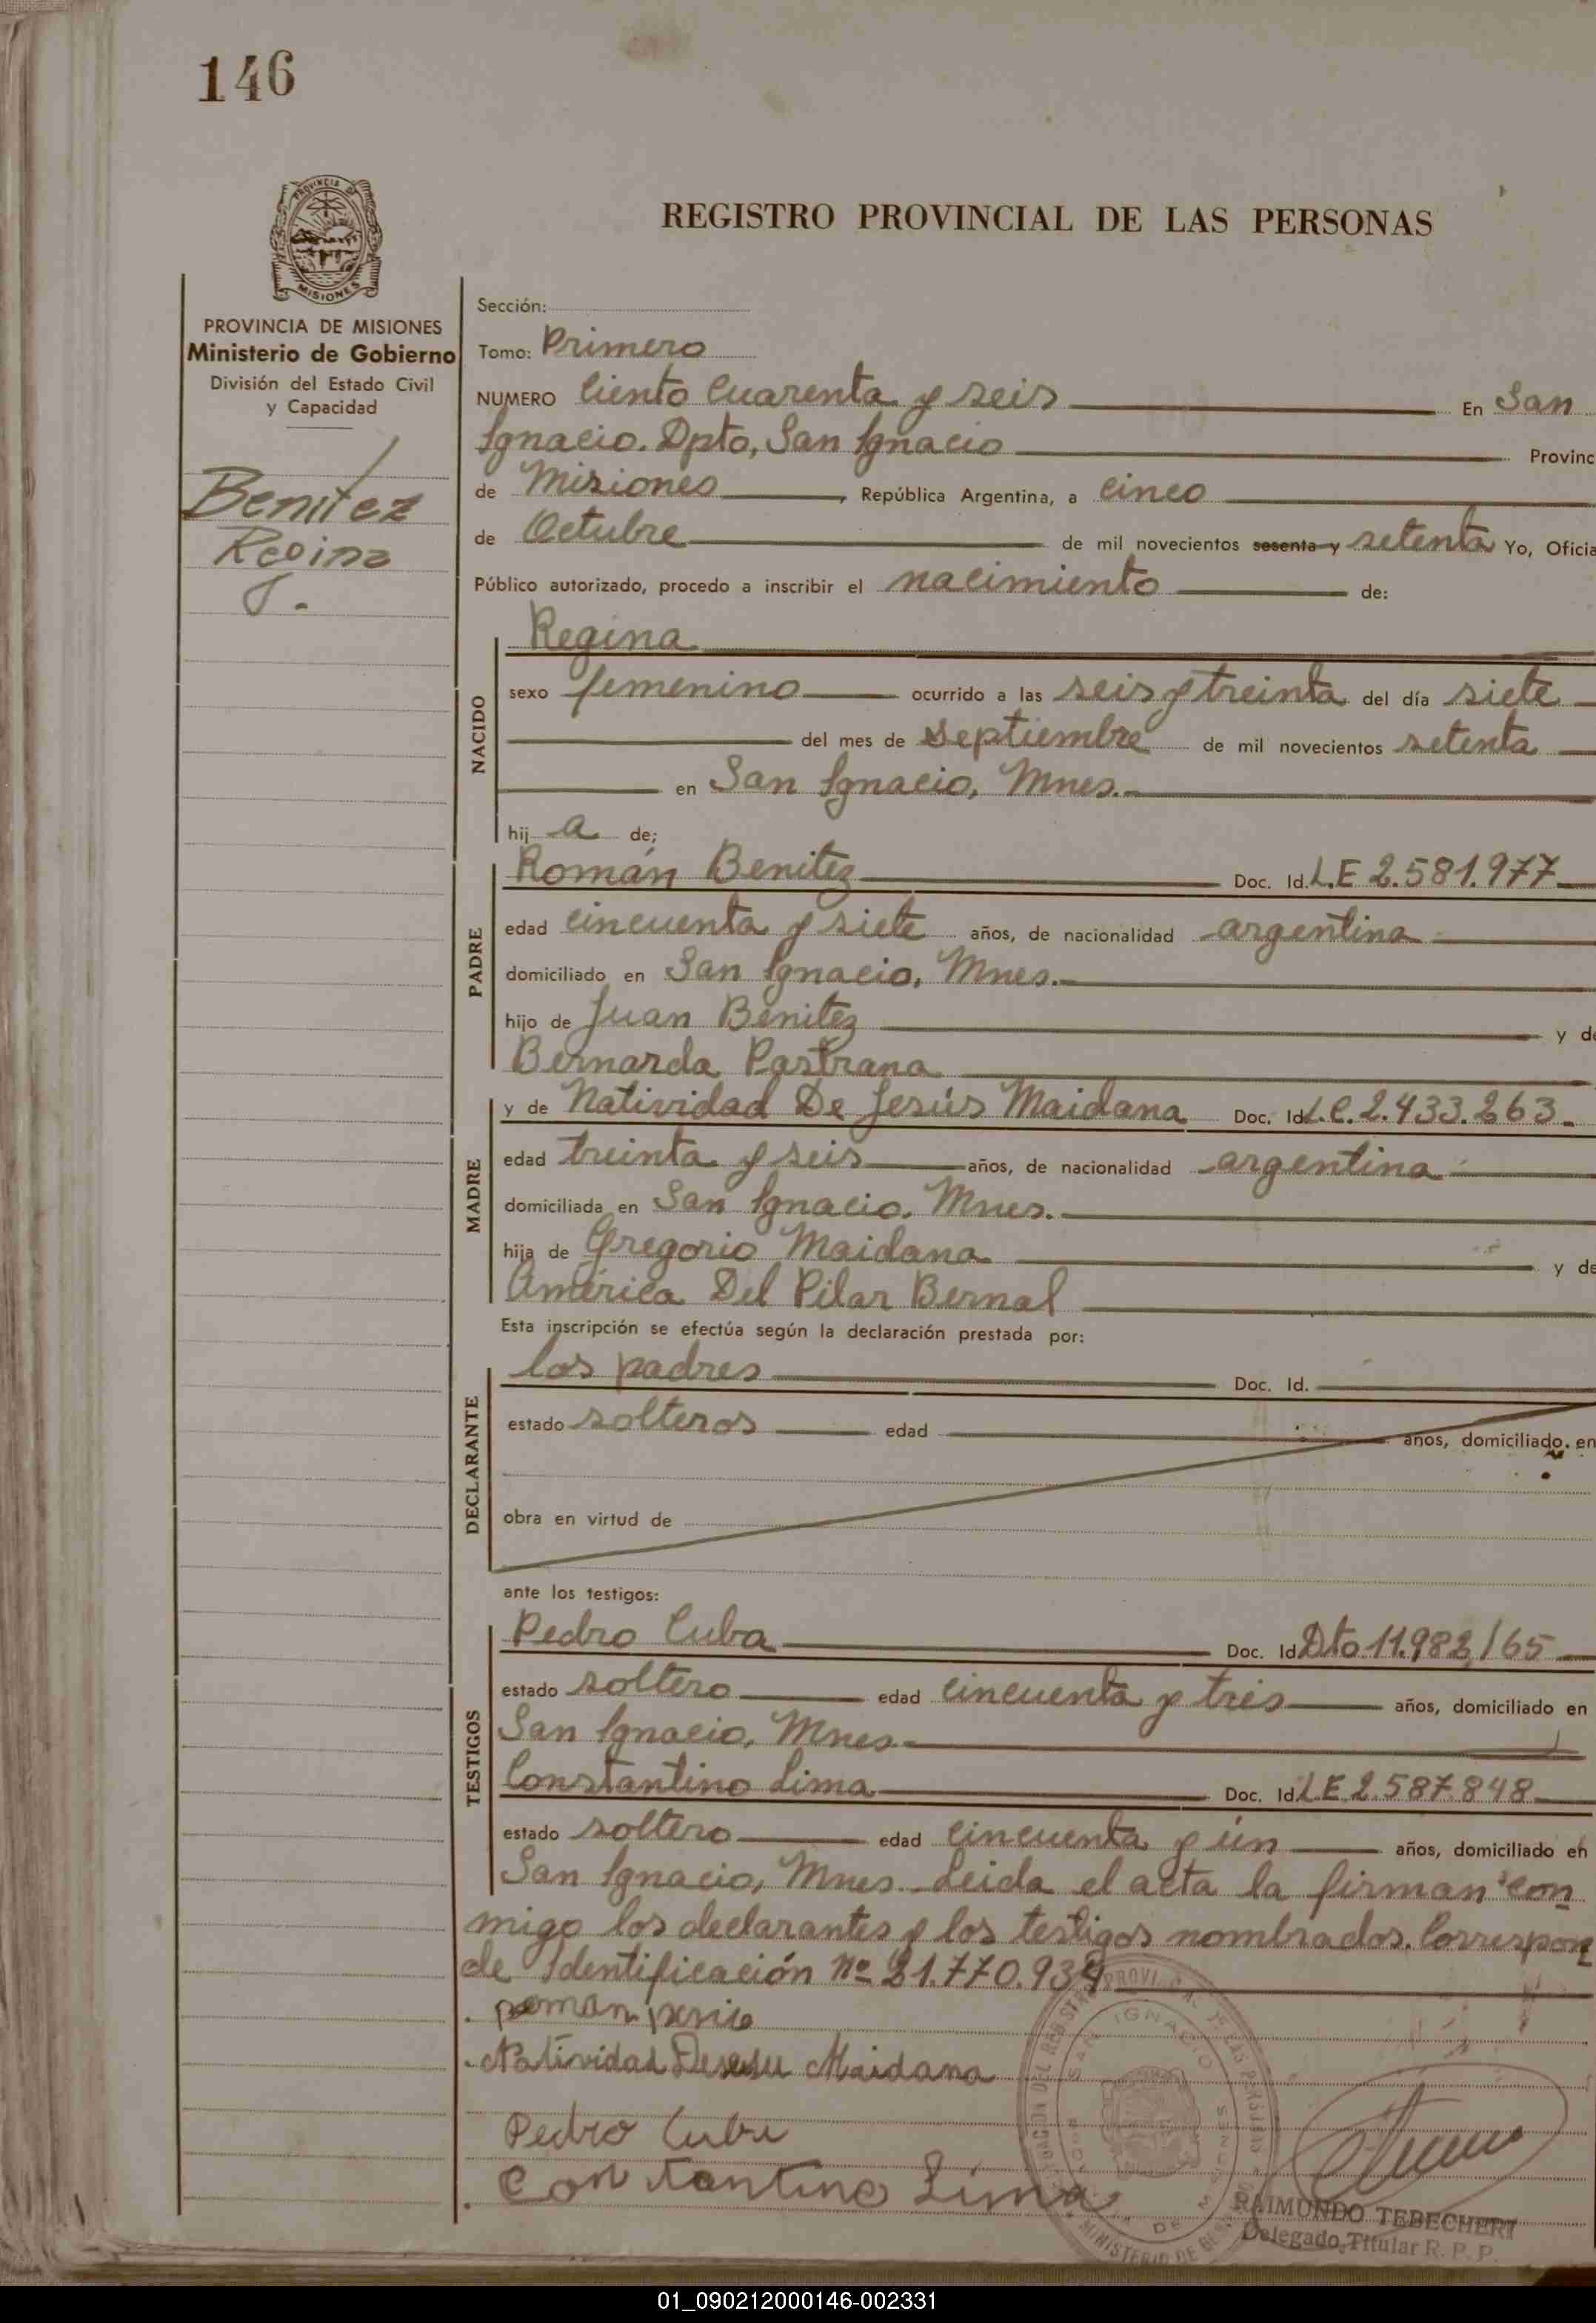 146
REGISTRO PROVINCIAL DE LAS PERSONAS
PROVINCIA DE MISIONES
Ministerio de Gobierno
División del Estado Civil
y Capacidad
Benitez
Regina
Sección:
Tomo: Primero
NUMERO Ciento Cuarenta y seis En San
Ignacio. Dpto, San Ignacio Provinc
de Misiones, República Argentina, a cinco
de Octubre de mil novecientos sesenta y setenta Yo, Oficia
Público autorizado, procedo a inscribir el nacimiento de:
NACIDO
Regina
sexo femenino ocurrido a las seis y treinta del día siete
del mes de septiembre de mil novecientos setenta
en San Ignacio, Mnes.
hij a de;
PADRE
Román Benitez Doc. Id. L.E 2.581.977
edad cincuenta y siete años, de nacionalidad argentina
domiciliado en San Ignacio, Mnes.
hijo de Juan Benitez y de
Bernarda Pastrana
MADRE
y de Natividad De Jesús Maidana Doc. Id L.C. 2.433.263
edad treinta y seis años, de nacionalidad argentina
domiciliada en San Ignacio. Mnes.
hija de Gregorio Maidana y de
América Del Pilar Bernal
Esta inscripción se efectúa según la declaración prestada por:
DECLARANTE
los padres Doc. Id.
estado solteros edad años, domiciliado en
obra en virtud de
ante los testigos:
TESTIGOS
Pedro Cuba Doc. Id Dto 11.982/65
estado soltero edad cincuenta y tres años, domiciliado en
San Ignacio, Mnes.
Constantino Lima Doc. Id L.E. 2.587.848
estado soltero edad cincuenta y ún años, domiciliado en
San Ignacio, Mnes. Leida el acta la firman con
migo los declarantes y los testigos nombrados. Correspon
de Identificación nº 21.770.934
Natividad Maidana
Pedro Cuba
Constantino Lima
RAIMUNDO TEBECHERI
Delegado Titular R. P. P.
01_090212000146-002331